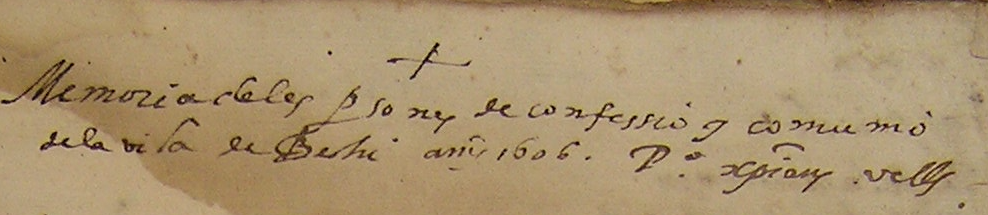 +
Memoria de les psones de confessio y comumo
de la vila de Bechi any 1606. Pº xpians vells.